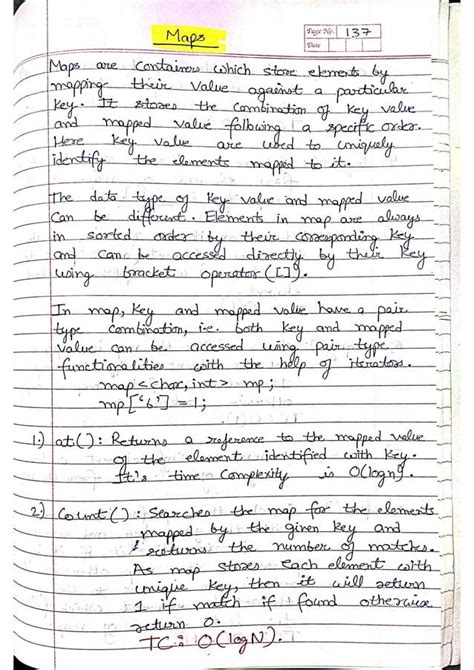 Maps
Page No. 137
Date
Maps are Containers which store elements by
mapping their value against a particular
key. It stores the combination of key value
and mapped value following a specific order.
Here key value are used to uniquely
identify the elements mapped to it.
The data type of key value and mapped value
Can be different. Elements in map are always
in sorted order by their corresponding key
and can be accessed directly by their key
using bracket operator ([]).
In map, key and mapped value have a pair
type combination, i.e. both key and mapped
value can be accessed using pair type
functionalities with the help of iterators.
map<char,int> mp;
mp['b'] = 1;
1.) at(): Returns a reference to the mapped value
of the element identified with key.
It's time complexity is O(logn).
2.) Count(): Searches the map for the elements
mapped by the given key and
returns the number of matches.
As map stores each element with
unique key, then it will return
1 if match if found otherwise
return 0.
TC: O(logN).